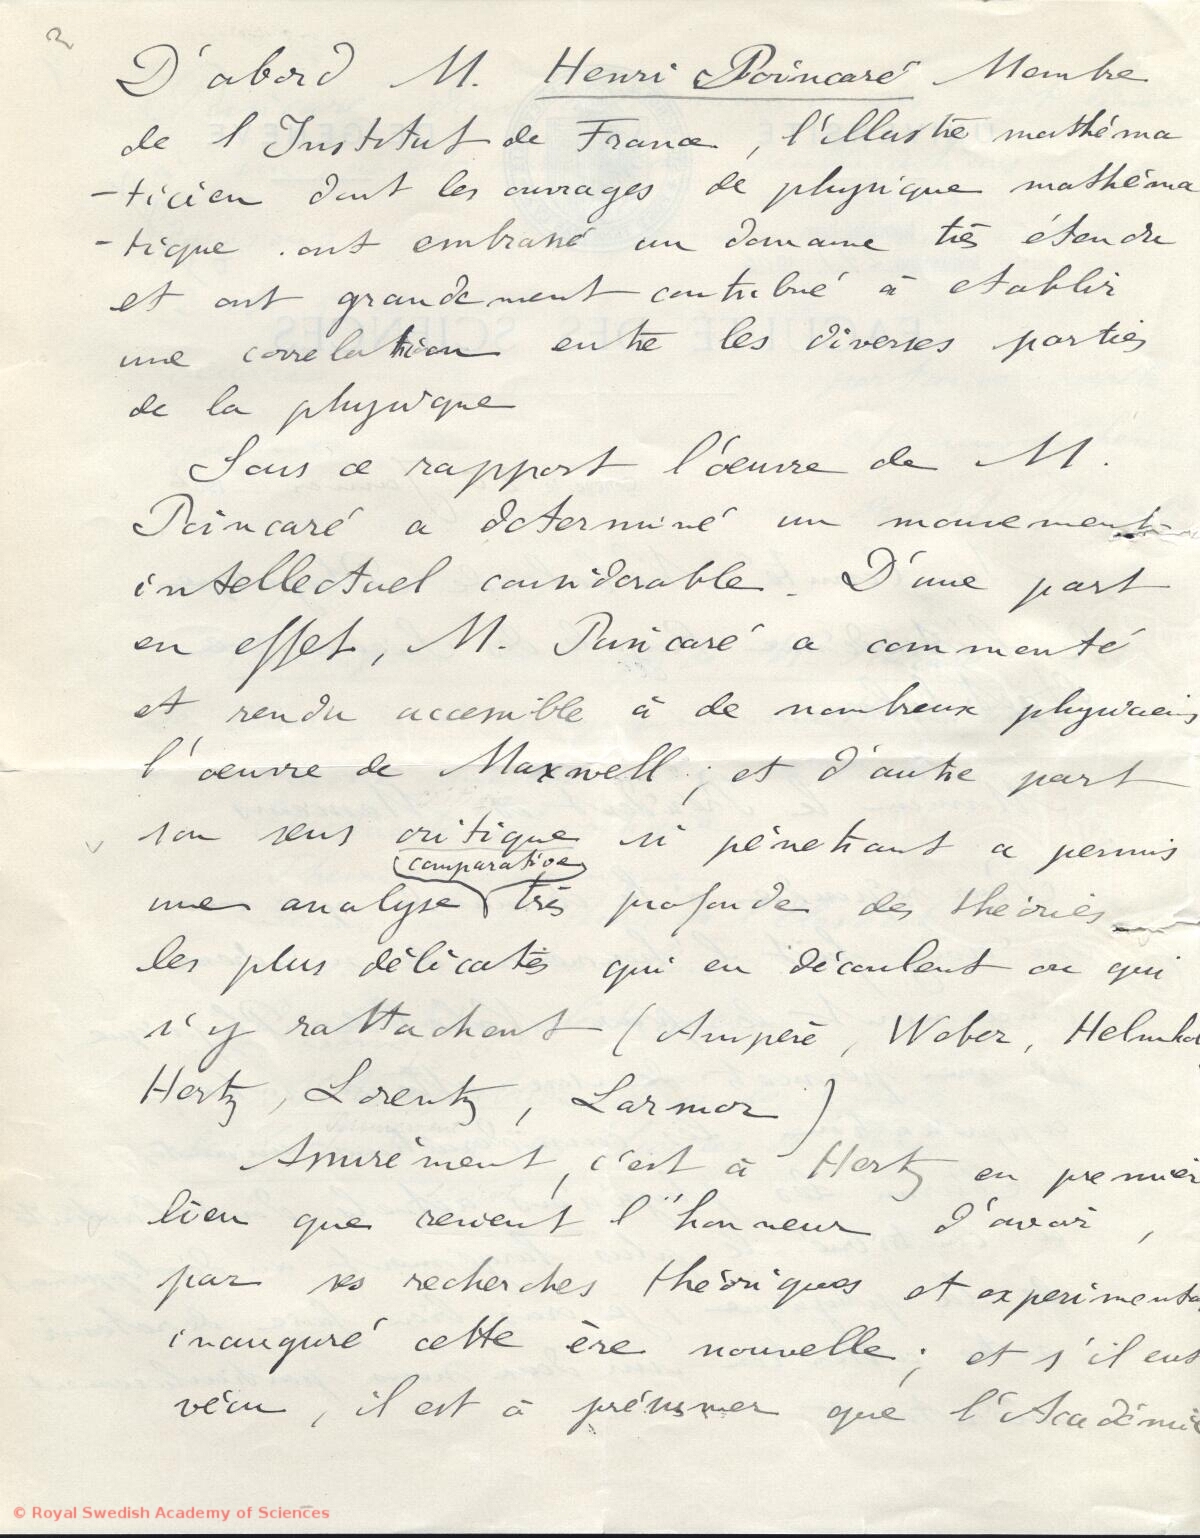 2
D'abord M. Henri Poincaré Membre
de l'Institut de France, l'illustre mathéma
-ticien dont les ouvrages de physique mathéma
-tique ont embrassé un domaine très étendu
et ont grandement contribué à etablir
une correlation entre les diverses parties
de la physique
Sous ce rapport l'œuvre de M.
Poincaré a determiné un mouvement
intellectuel considerable. D'une part
en effet, M. Poincaré a commenté
et rendu accessible à de nombreux physiciens
l'oeuvre de Maxwell ; et d'autre part
son sens critique si pénetrant a permis
comparative
une analyse très profonde des théories
les plus délicates qui en découlent ou qui
s'y rattachent (Ampère, Weber, Helmho
Hertz, Lorentz, Larmor)
Assurément, c'est à Hertz en premier
lieu que revient l'honneur d'avoir,
par ses recherches théoriques et experimenta
inauguré cette ère nouvelle ; et s'il eut
vécu, il est à présumer que l'Académie
© Royal Swedish Academy of Sciences